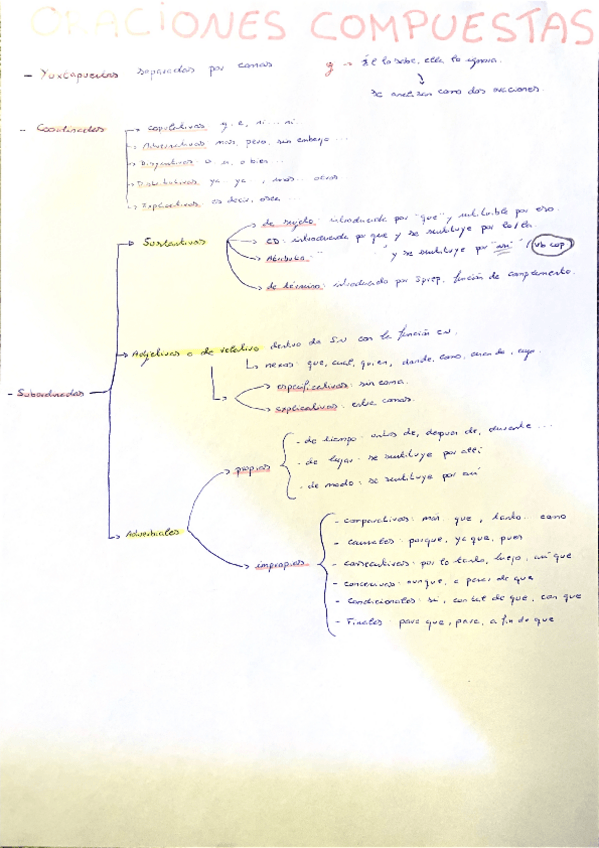 ORACIONES COMPUESTAS
- Yuxtapuestas separadas por comas
ej → él lo sabe, ella lo ignora.
↓
se analizan como dos oraciones.
- Coordinadas
→ copulativas y, e, ni... ni
→ Adversativas mas, pero, sin embargo ...
→ Disyuntivas o, u, o bien...
→ Distributivas ya... ya, unos... otros
→ Explicativas es decir, o sea ...
- Subordinadas
→ Sustantivas
→ de sujeto: introducida por "que" y sustituible por eso.
→ CD: introducida por que y se sustituye por lo/
→ Atributo " " y se sustituye por "así" / vb cop
→ de término: introducido por Sprep, función de complemento.
→ Adjetivas o de relativo dentro de SN con la función CN.
↳ nexos: que, cual, quien, donde, como, cuando, cuyo.
→ especificativas: sin coma.
→ explicativas: entre comas.
→ Adverbiales
→ propias
- de tiempo: antes de, después de, durante ...
- de lugar: se sustituye por allí
- de modo: se sustituye por así
→ impropias
- comparativas: más.. que, tanto.. como
- causales: porque, ya que, pues
- consecutivas: por lo tanto, luego, así que
- concesivas: aunque, a pesar de que
- condicionales: si, con tal de que, con que
- Finales: para que, para, a fin de que